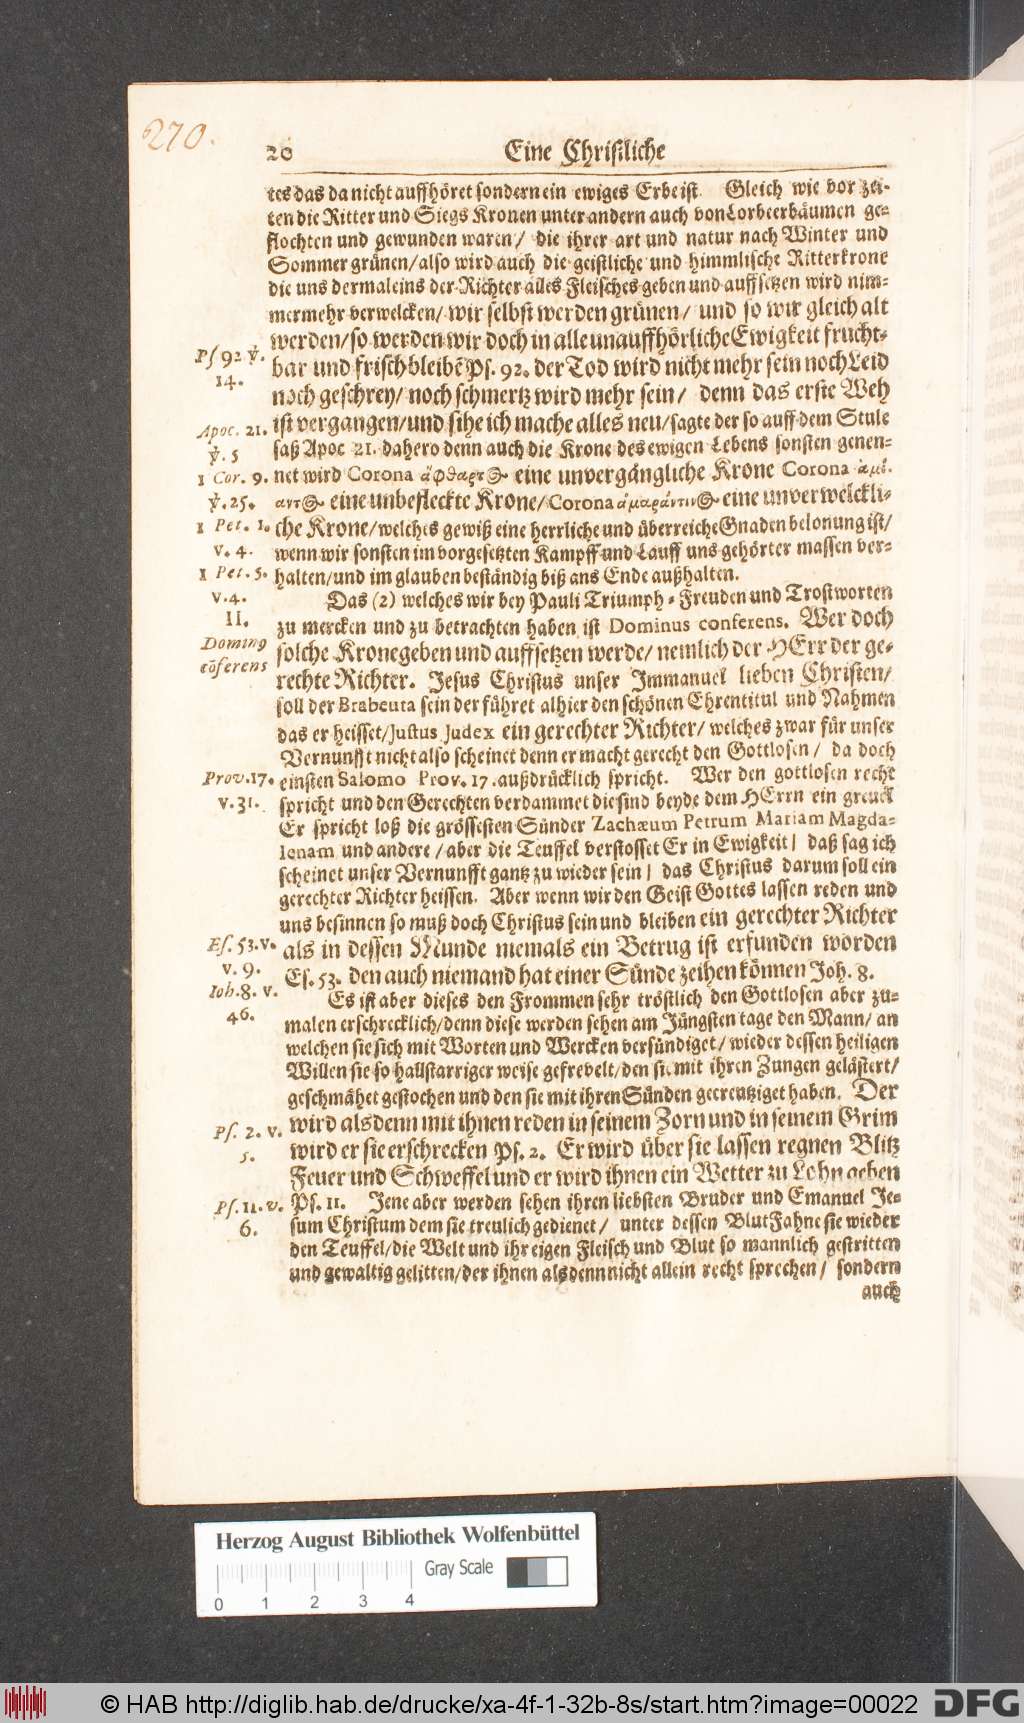 270.
20 Eine Christliche
tes das da nicht auffhöret sondern ein ewiges Erbe ist. Gleich wie vor zei-
ten die Ritter und Siegs Kronen unter andern auch von Lorbeerbäumen ge-
flochten und gewunden waren / die ihrer art und natur nach Winter und
Sommer grünen / also wird auch die geistliche und himmlische Ritterkrone
die uns dermaleins der Richter alles Fleisches geben und auffsetzen wird nim-
mermehr verwelcken / wir selbst werden grünen / und so wir gleich alt
werden / so werden wir doch in alle unauffhörliche Ewigkeit frucht-
Ps 92 v. bar und frisch bleibē Ps. 92. der Tod wird nicht mehr sein noch Leid
14. noch geschrey / noch schmertz wird mehr sein / denn das erste Weh
ist vergangen / und sihe ich mache alles neu / sagte der so auff dem Stule
Apoc. 21. saß Apoc 21. dahero denn auch die Krone des ewigen Lebens sonsten genen-
v. 5
1 Cor. 9. net wird Corona ἄφθαρτος eine unvergängliche Krone Corona ἀμί-
v. 25. αντος eine unbefleckte Krone / Corona ἀμαράντινος eine unverwelckli-
1 Pet. 1. che Krone / welches gewiß eine herrliche und überreiche Gnaden belonung ist /
v. 4. wenn wir sonsten im vorgesetzten Kampff und Lauff uns gehörter massen ver-
1 Pet. 5. halten / und im glauben beständig biß ans Ende außhalten.
v. 4. Das (2) welches wir bey Pauli Triumph-Freuden und Trostworten
II. zu mercken und zu betrachten haben ist Dominus conferens. Wer doch
Dominꝯ solche Krone geben und auffsetzen werde / nemlich der HErr der ge-
cōferens rechte Richter. Jesus Christus unser Immanuel lieben Christen /
soll der Brabeuta sein der führet alhier den schönen Ehrentitul und Nahmen
das er heisset / Justus Judex ein gerechter Richter / welches zwar für unser
Vernunfft nicht also scheinet denn er macht gerecht den Gottlosen / da doch
Prov. 17. einsten Salomo Prov. 17. außdrücklich spricht. Wer den gottlosen recht
v. 31. spricht und den Gerechten verdammet die sind beyde dem HErrn ein greuel
Er spricht loß die grössesten Sünder Zachæum Petrum Mariam Magda-
lenam und andere / aber die Teuffel verstosset Er in Ewigkeit / daß sag ich
scheinet unser Vernunfft gantz zu wieder sein / das Christus darum soll ein
gerechter Richter heissen. Aber wenn wir den Geist Gottes lassen reden und
uns besinnen so muß doch Christus sein und bleiben ein gerechter Richter
Es. 53. v. als in dessen Munde niemals ein Betrug ist erfunden worden
v. 9. Es. 53. den auch niemand hat einer Sünde zeihen können Joh. 8.
Ioh. 8. v. Es ist aber dieses den Frommen sehr tröstlich den Gottlosen aber zu-
46. malen erschrecklich / denn diese werden sehen am Jüngsten tage den Mann / an
welchen sie sich mit Worten und Wercken versündiget / wieder dessen heiligen
Willen sie so hallstarriger weise gefrevelt / den sie mit ihren Zungen gelästert /
geschmähet gestochen und den sie mit ihren Sünden gecreutziget haben. Der
Ps. 2. v. wird alsdenn mit ihnen reden in seinem Zorn und in seinem Grim
5. wird er sie erschrecken Ps. 2. Er wird über sie lassen regnen Blitz
Feuer und Schweffel und er wird ihnen ein Wetter zu Lohn geben
Ps. 11. v. Ps. 11. Jene aber werden sehen ihren liebsten Bruder und Emanuel Je-
6. sum Christum dem sie treulich gedienet / unter dessen Blut Fahne sie wieder
den Teuffel / die Welt und ihr eigen Fleisch und Blut so mannlich gestritten
und gewaltig gelitten / der ihnen alsdenn nicht allein recht sprechen / sondern
auch
Herzog August Bibliothek Wolfenbüttel
Gray Scale
0 1 2 3 4
© HAB http://diglib.hab.de/drucke/xa-4f-1-32b-8s/start.htm?image=00022
DFG